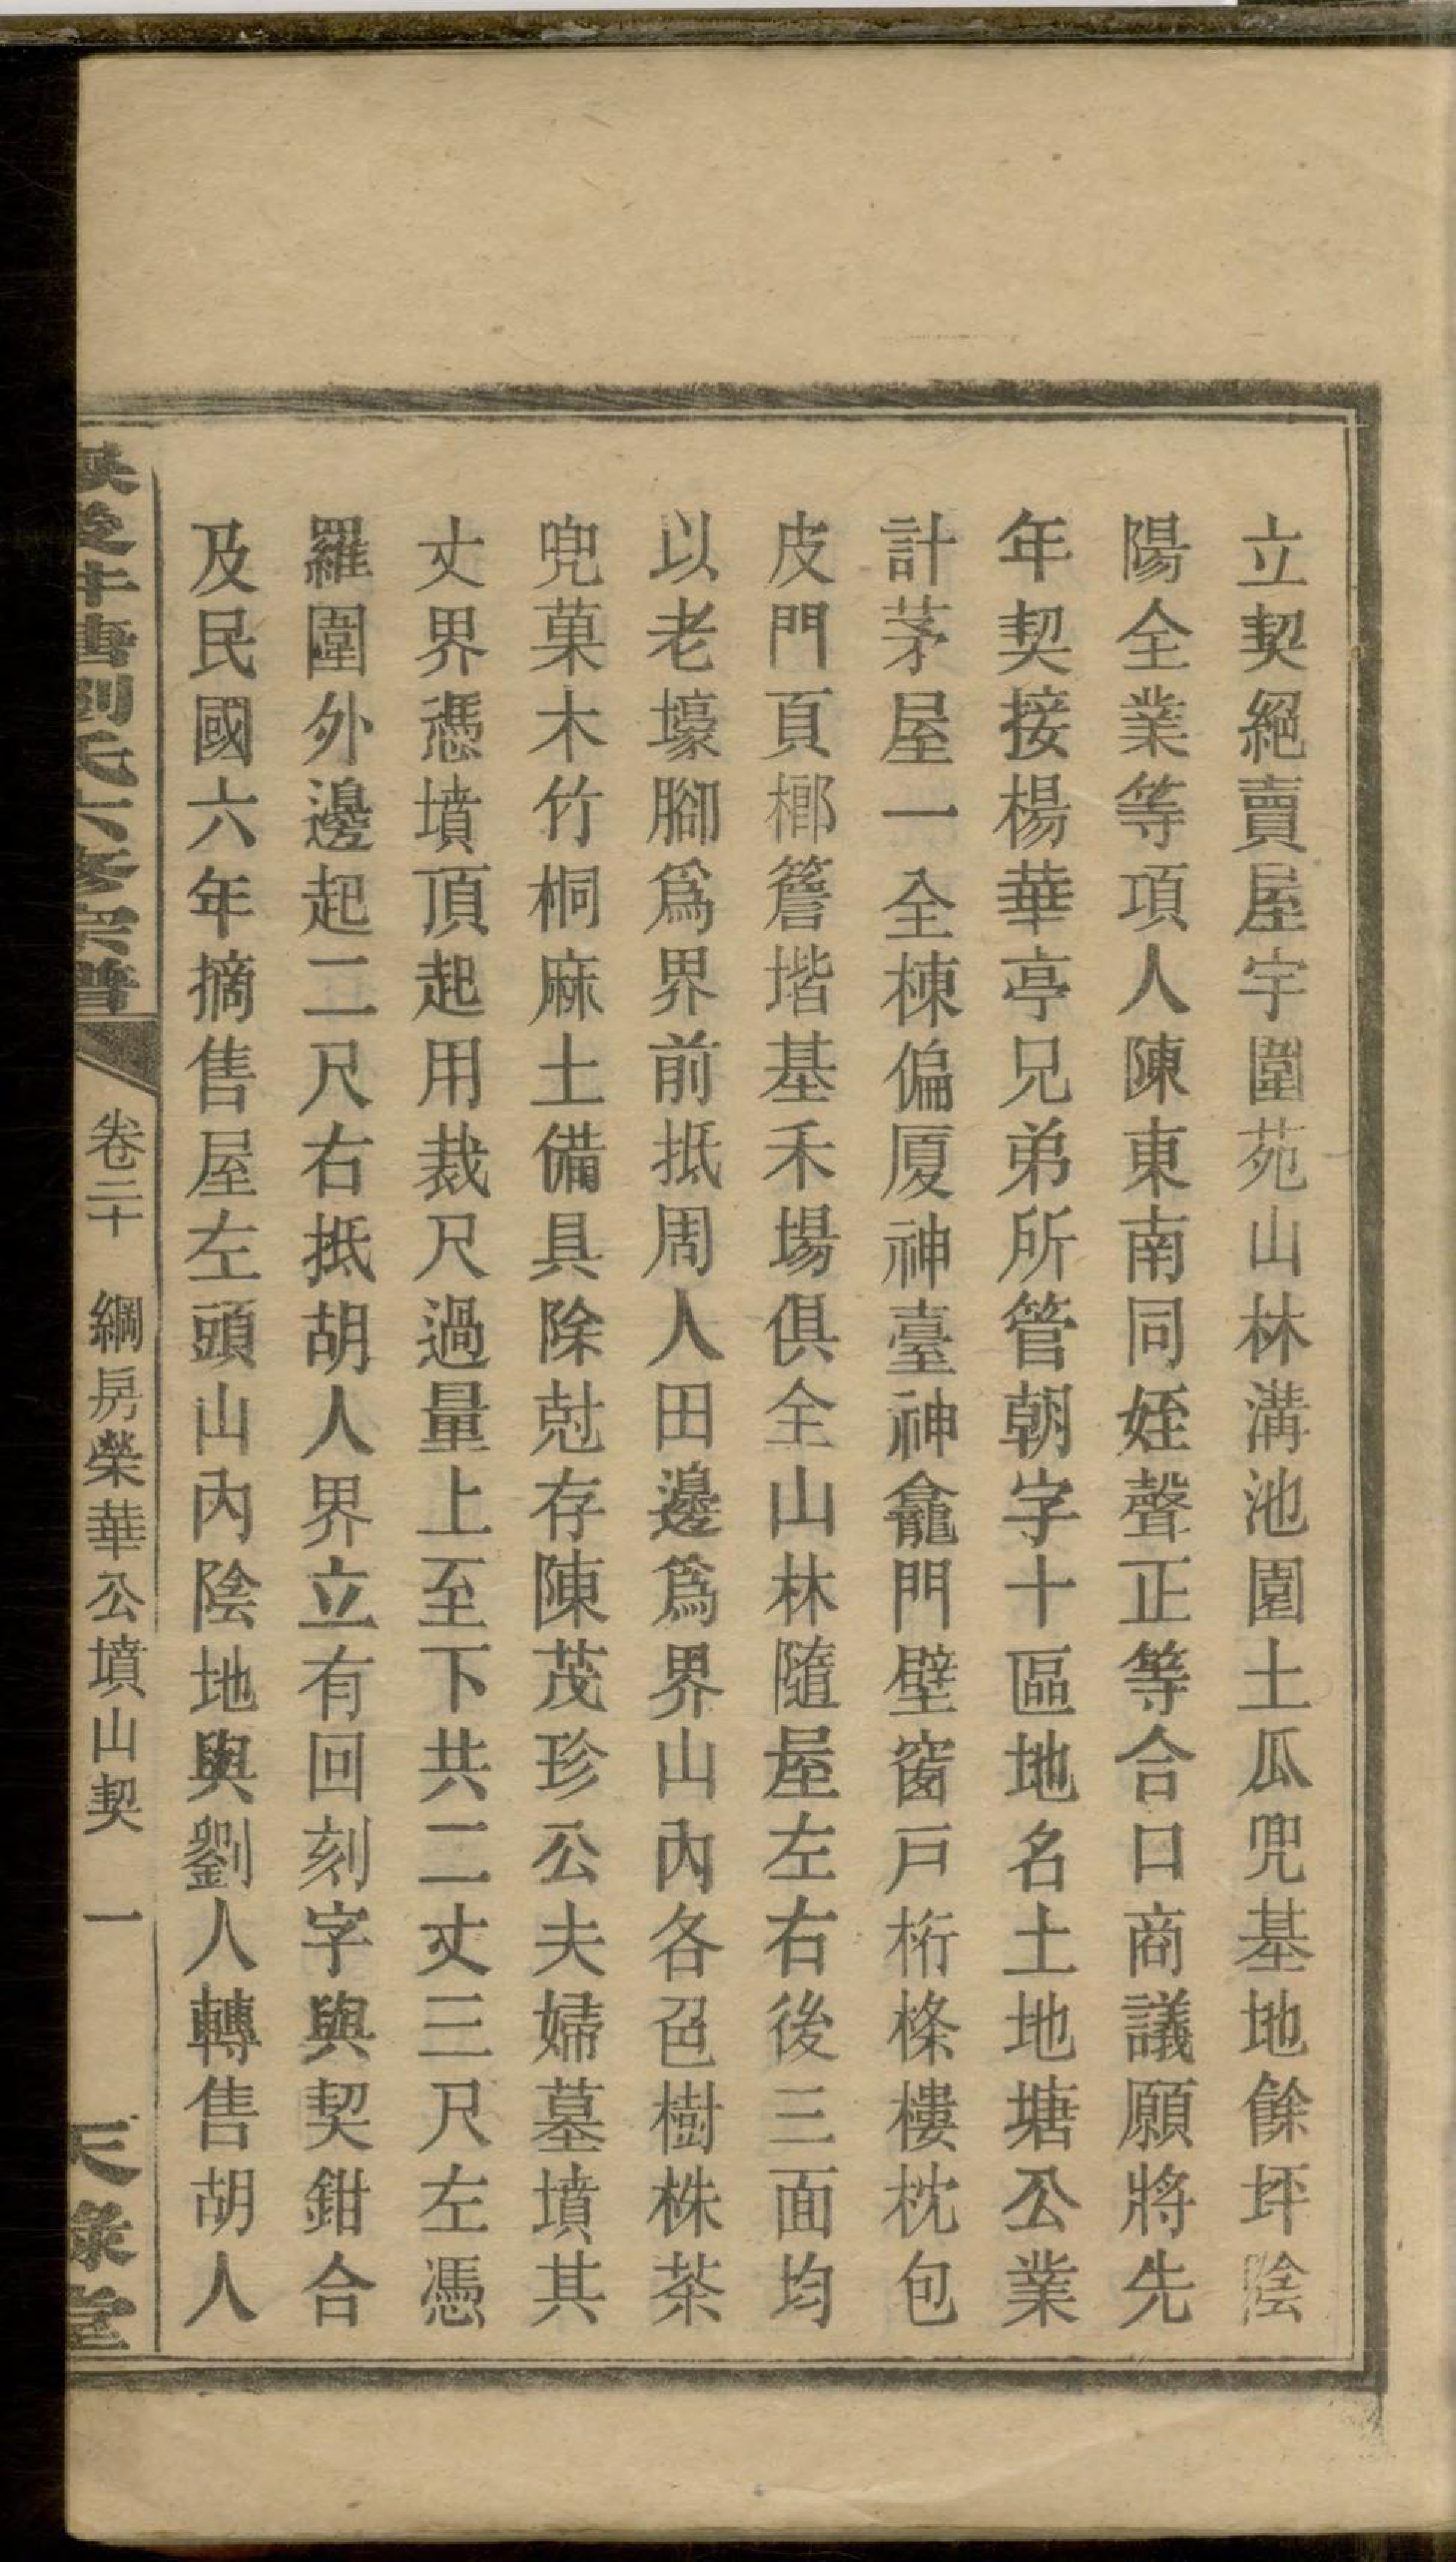 立契絕賣屋宇圍苑山林溝池園土瓜兜基地餘坪陰
陽全業等項人陳東南同姪聲正等合口商議願將先
年契接楊華亭兄弟所管朝字十區地名土地塘公業
計茅屋一全棟偏厦神臺神龕門壁窗戸桁檪樓枕包
皮門頁榔簷堦基禾場俱全山林隨屋左右後三面均
以老壕腳爲界前抵周人田邊爲界山內各色樹株茶
兜菓木竹桐麻土備具除尅存陳茂珍公夫婦墓墳其
丈界憑墳頂起用裁尺過量上至下共二丈三尺左憑
羅圍外邊起二尺右抵胡人界立有回刻字與契鉗合
及民國六年摘售屋左頭山內陰地與劉人轉售胡人
牛塘劉氏六修宗譜 卷二十 綱房榮華公墳山契 一 天祿堂